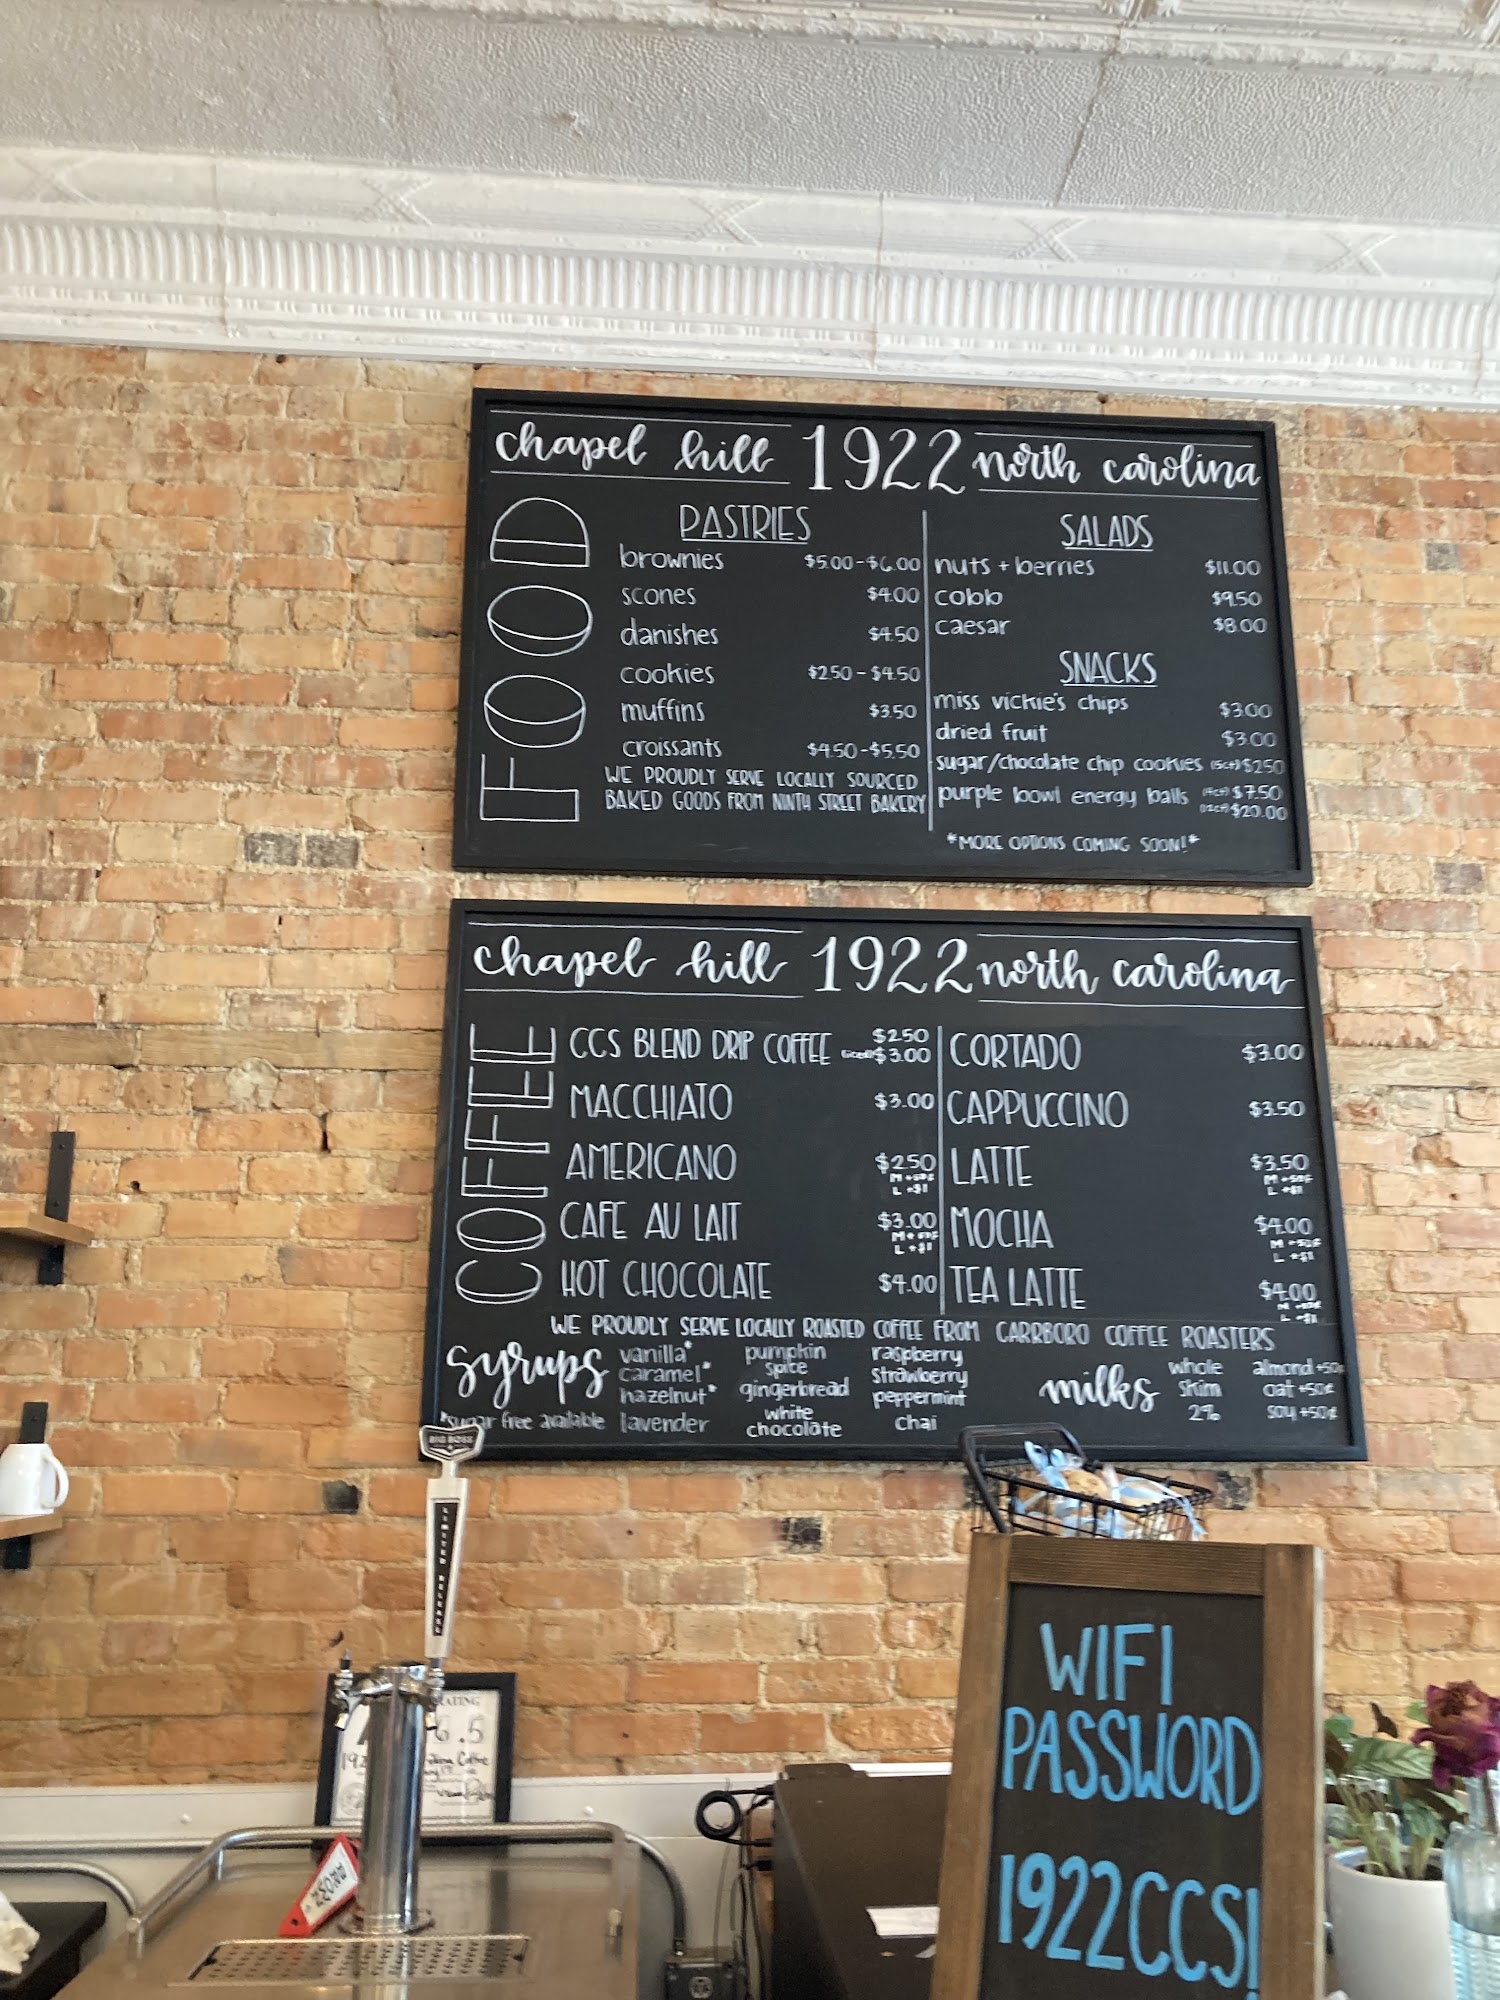 chapel hill 1922 north carolina
FOOD
PASTRIES
brownies $5.00-$6.00
scones $4.00
danishes $4.50
cookies $2.50-$4.50
muffins $3.50
croissants $4.50-$5.50
WE PROUDLY SERVE LOCALLY SOURCED
BAKED GOODS FROM NINTH STREET BAKERY
SALADS
nuts + berries $11.00
cobb $9.50
caesar $8.00
SNACKS
miss vickie's chips $3.00
dried fruit $3.00
sugar/chocolate chip cookies (5ct) $2.50
purple bowl energy balls (4ct) $7.50
(12ct) $20.00
*MORE OPTIONS COMING SOON!*
chapel hill 1922 north carolina
COFFEE
CCS BLEND DRIP COFFEE $2.50
(iced) $3.00
MACCHIATO $3.00
AMERICANO $2.50
M +50¢
L +$1
CAFE AU LAIT $3.00
M +50¢
L +$1
HOT CHOCOLATE $4.00
CORTADO $3.00
CAPPUCCINO $3.50
LATTE $3.50
M +50¢
L +$1
MOCHA $4.00
M +50¢
L +$1
TEA LATTE $4.00
M +50¢
L +$1
WE PROUDLY SERVE LOCALLY ROASTED COFFEE FROM CARRBORO COFFEE ROASTERS
syrups
*sugar free available
vanilla*
caramel*
hazelnut*
lavender
pumpkin
spice
gingerbread
white
chocolate
raspberry
strawberry
peppermint
chai
milks
whole
skim
2%
almond +50¢
oat +50¢
soy +50¢
BIG BOSS
LIMITED RELEASE
RATING
6.5
WIFI
PASSWORD
1922CCS!